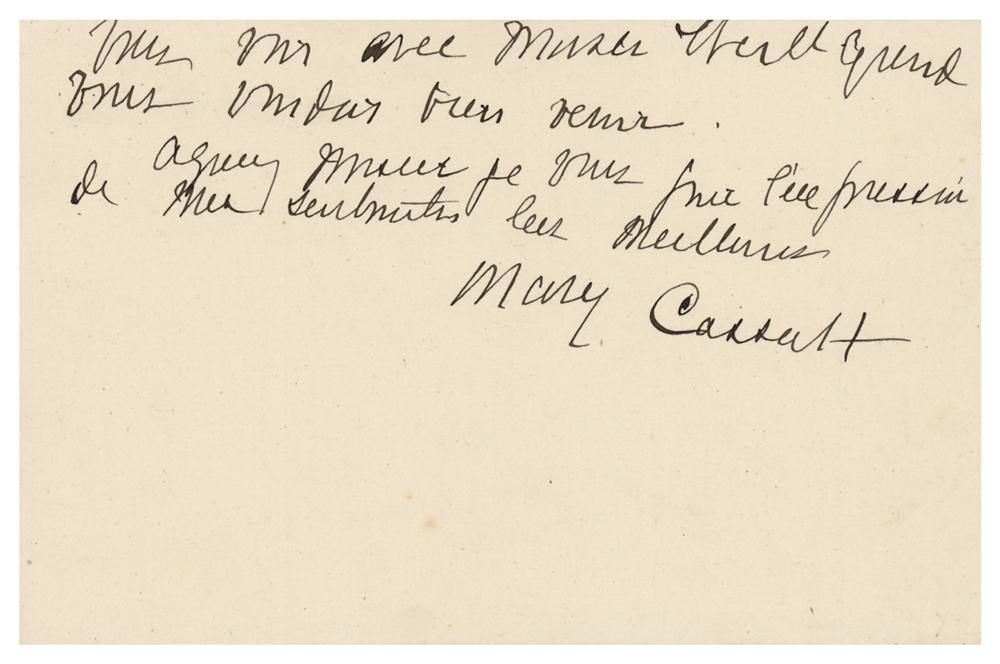 vous voir avec Monsieur quand
vous voudrez bien venir.
agréez Monsieur je vous prie l'expression
de mes sentiments les meilleurs
Mary Cassatt